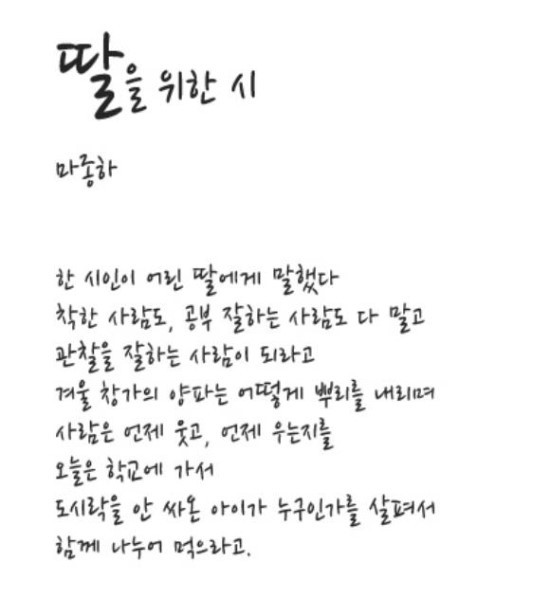 딸을 위한 시
마종하
한 시인이 어린 딸에게 말했다
착한 사람도, 공부 잘하는 사람도 다 말고
관찰을 잘하는 사람이 되라고
겨울 창가의 양파는 어떻게 뿌리를 내리며
사람은 언제 웃고, 언제 우는지를
오늘은 학교에 가서
도시락을 안 싸온 아이가 누구인가를 살펴서
함께 나누어 먹으라고.